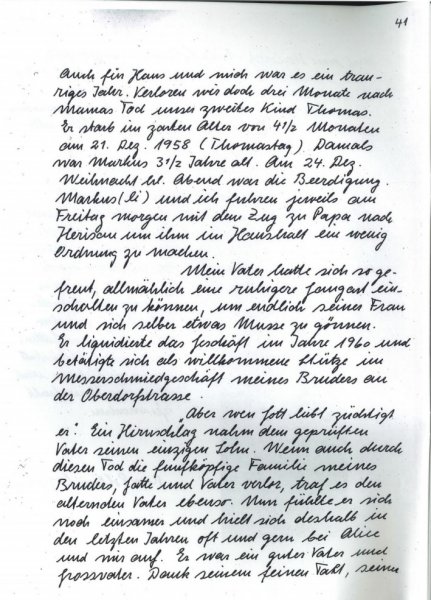 41
Auch für Hans und mich war es ein trau-
riges Jahr. Verloren wir doch drei Monate nach
Mamas Tod unser zweites Kind Thomas.
Er starb im zarten Alter von 4 1/2 Monaten
am 21. Dez. 1958 (Thomastag). Damals
war Markus 3 1/2 Jahre alt. Am 24. Dez.
Weihnacht hl. Abend war die Beerdigung.
Markus (li) und ich fuhren jeweils am
Freitag morgen mit dem Zug zu Papa nach
Herisau um ihm im Haushalt ein wenig
Ordnung zu machen.
Mein Vater hatte sich so ge-
freut, allmählich eine ruhigere Gangart ein-
schalten zu können, um endlich seiner Frau
und sich selber etwas Musse zu gönnen.
Er liquidierte das Geschäft im Jahre 1960 und
betätigte sich als willkommene Stütze im
Messerschmiedgeschäft meines Bruders an
der Oberdorfstrasse.
"Aber wen Gott liebt züchtigt
er". Ein Hirnschlag nahm dem geprüften
Vater seinen einzigen Sohn. Wenn auch durch
diesen Tod die fünfköpfige Familie meines
Bruders, Gatte und Vater verlor, traf es den
alternden Vater ebenso. Nun fühlte er sich
noch einsamer und hielt sich deshalb in
den letzten Jahren oft und gern bei Alice
und mir auf. Er war ein guter Vater und
Grossvater. Dank seinem feinen Takt, seiner